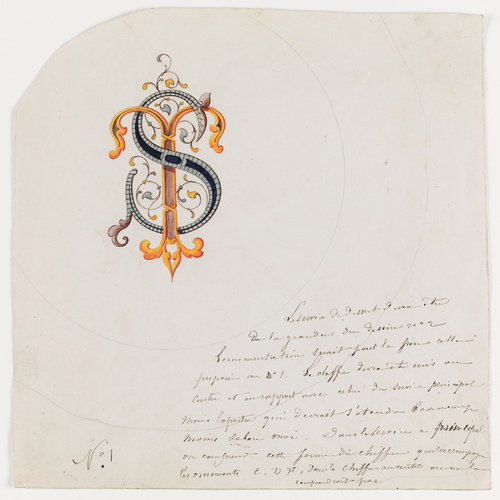 TS
Le service de dessert devra être
de la grandeur du dessin n° 2
L'ornementation serait pour la forme celle
proposée au N° 1. Le chiffre devra être mis au
centre et en rapport avec celui du service principal
mais qui devrait s'étendre beaucoup
moins selon moi. Dans le service principal
on conçoit cette forme du chiffre qui accompagne
les ornements dans le chiffre au centre on ne la
comprendrait pas
N° 1